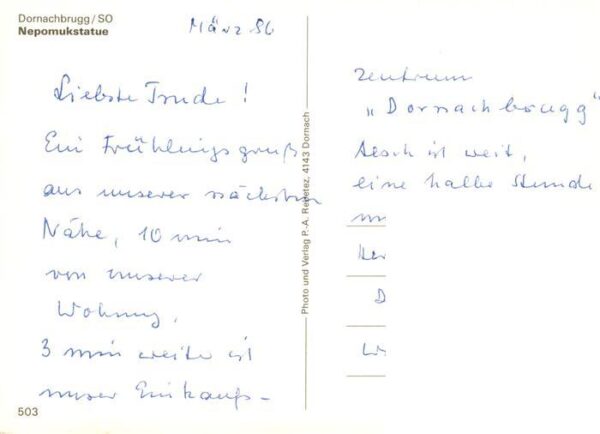 Dornachbrugg/SO
Nepomukstatue
März 86
Liebste Trude!
Ein Frühlingsgruß
aus unserer nächsten
Nähe, 10 min
von unserer
Wohnung,
3 min weiter ist
unser Einkaufs-
503
Photo und Verlag P.-A. Repetez, 4143 Dornach
zentrum
„Dornachbrugg"
Aesch ist weit,
eine halbe Stunde